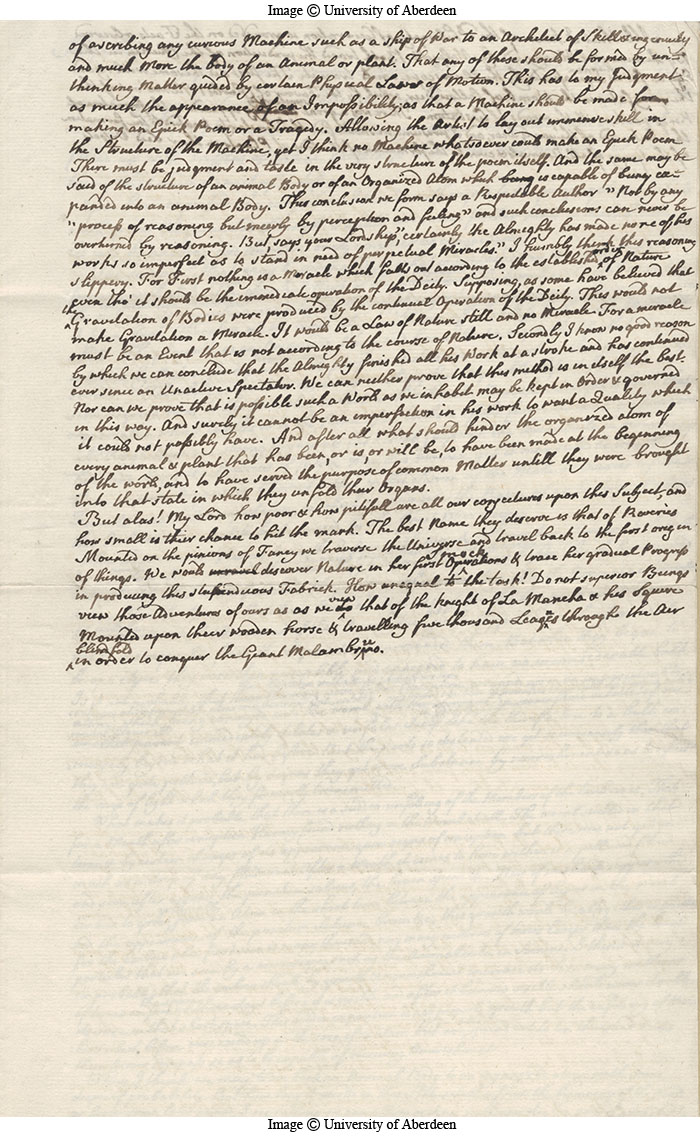 Image © University of Aberdeen
of ascribing any curious Machine such as a ship of War to an Architect of Skill & ingenuity
and much more the body of an Animal or plant. That any of these should be formed by un-
thinking Matter guided by certain Physical Laws of Motion. This has to my Judgment
as much the appearance of an Impossibility; as that a Machine should be made for
making an Epick Poem or a Tragedy. Allowing the Artist to lay out immense skill in
the Structure of the Machine, yet I think no Machine whatsoever could make an Epick Poem
There must be judgment and taste in the very structure of the poem itself. And the same may be
said of the structure of an animal Body or of an Organized Atom which being is capable of being ex-
panded into an animal Body. This conclusion we form says a Respectable Author "Not by any
"process of reasoning but meerly by perception and feeling" and such conclusions can never be
overturned by reasoning. But, says your Lordship, "certainly the Almighty has made none of his
works so imperfect as to stand in need of perpetual Miracles." I humbly think this reasoning
slippery. For First nothing is a Miracle which falls out according to the established order of Nature
even tho' it should be the immediate operation of the Deity. Supposing, as some have believed that
the Gravitation of Bodies were produced by the continual Operation of the Deity. This would not
make Gravitation a Miracle. It would be a Law of Nature still and no Miracle. For a miracle
must be an Event that is not according to the course of Nature. Secondly I know no good reason
by which we can conclude that the Almighty finished all his Work at a stroke and has continued
ever since an Unactive Spectator. We can neither prove that this method is in itself the best.
Nor can we prove that is possible such a World as we inhabit may be kept in Order & governed
in this way. And surely it cannot be an imperfection in his work to want a Quality which
it could not possibly have. And after all what should hinder the organized atom of
every animal & plant that has been, or is or will be, to have been made at the beginning
of the world, and to have served the purpose of common Matter untill they were brought
into that state in which they unfold their Organs.
But alas! My Lord how poor & how pitifull are all our conjectures upon this Subject, and
how small is their chance to hit the mark. The best Name they deserve is that of Reveries
Mounted on the pinions of Fancy we traverse the Universe and travel back to the first origin
of things. We would unravel discover Nature in her first Operations & trace her gradual Progress
in producing this stupenduous Fabrick. How unequal to such the task! Do not superior Beings
view those Adventures of ours as as we view do that of the knight of La Mancha & his Squire
Mounted upon their wooden horse & travelling five thousand Leagues through the Air
blindfold
in order to conquer the Geant Malambruno.
Image © University of Aberdeen